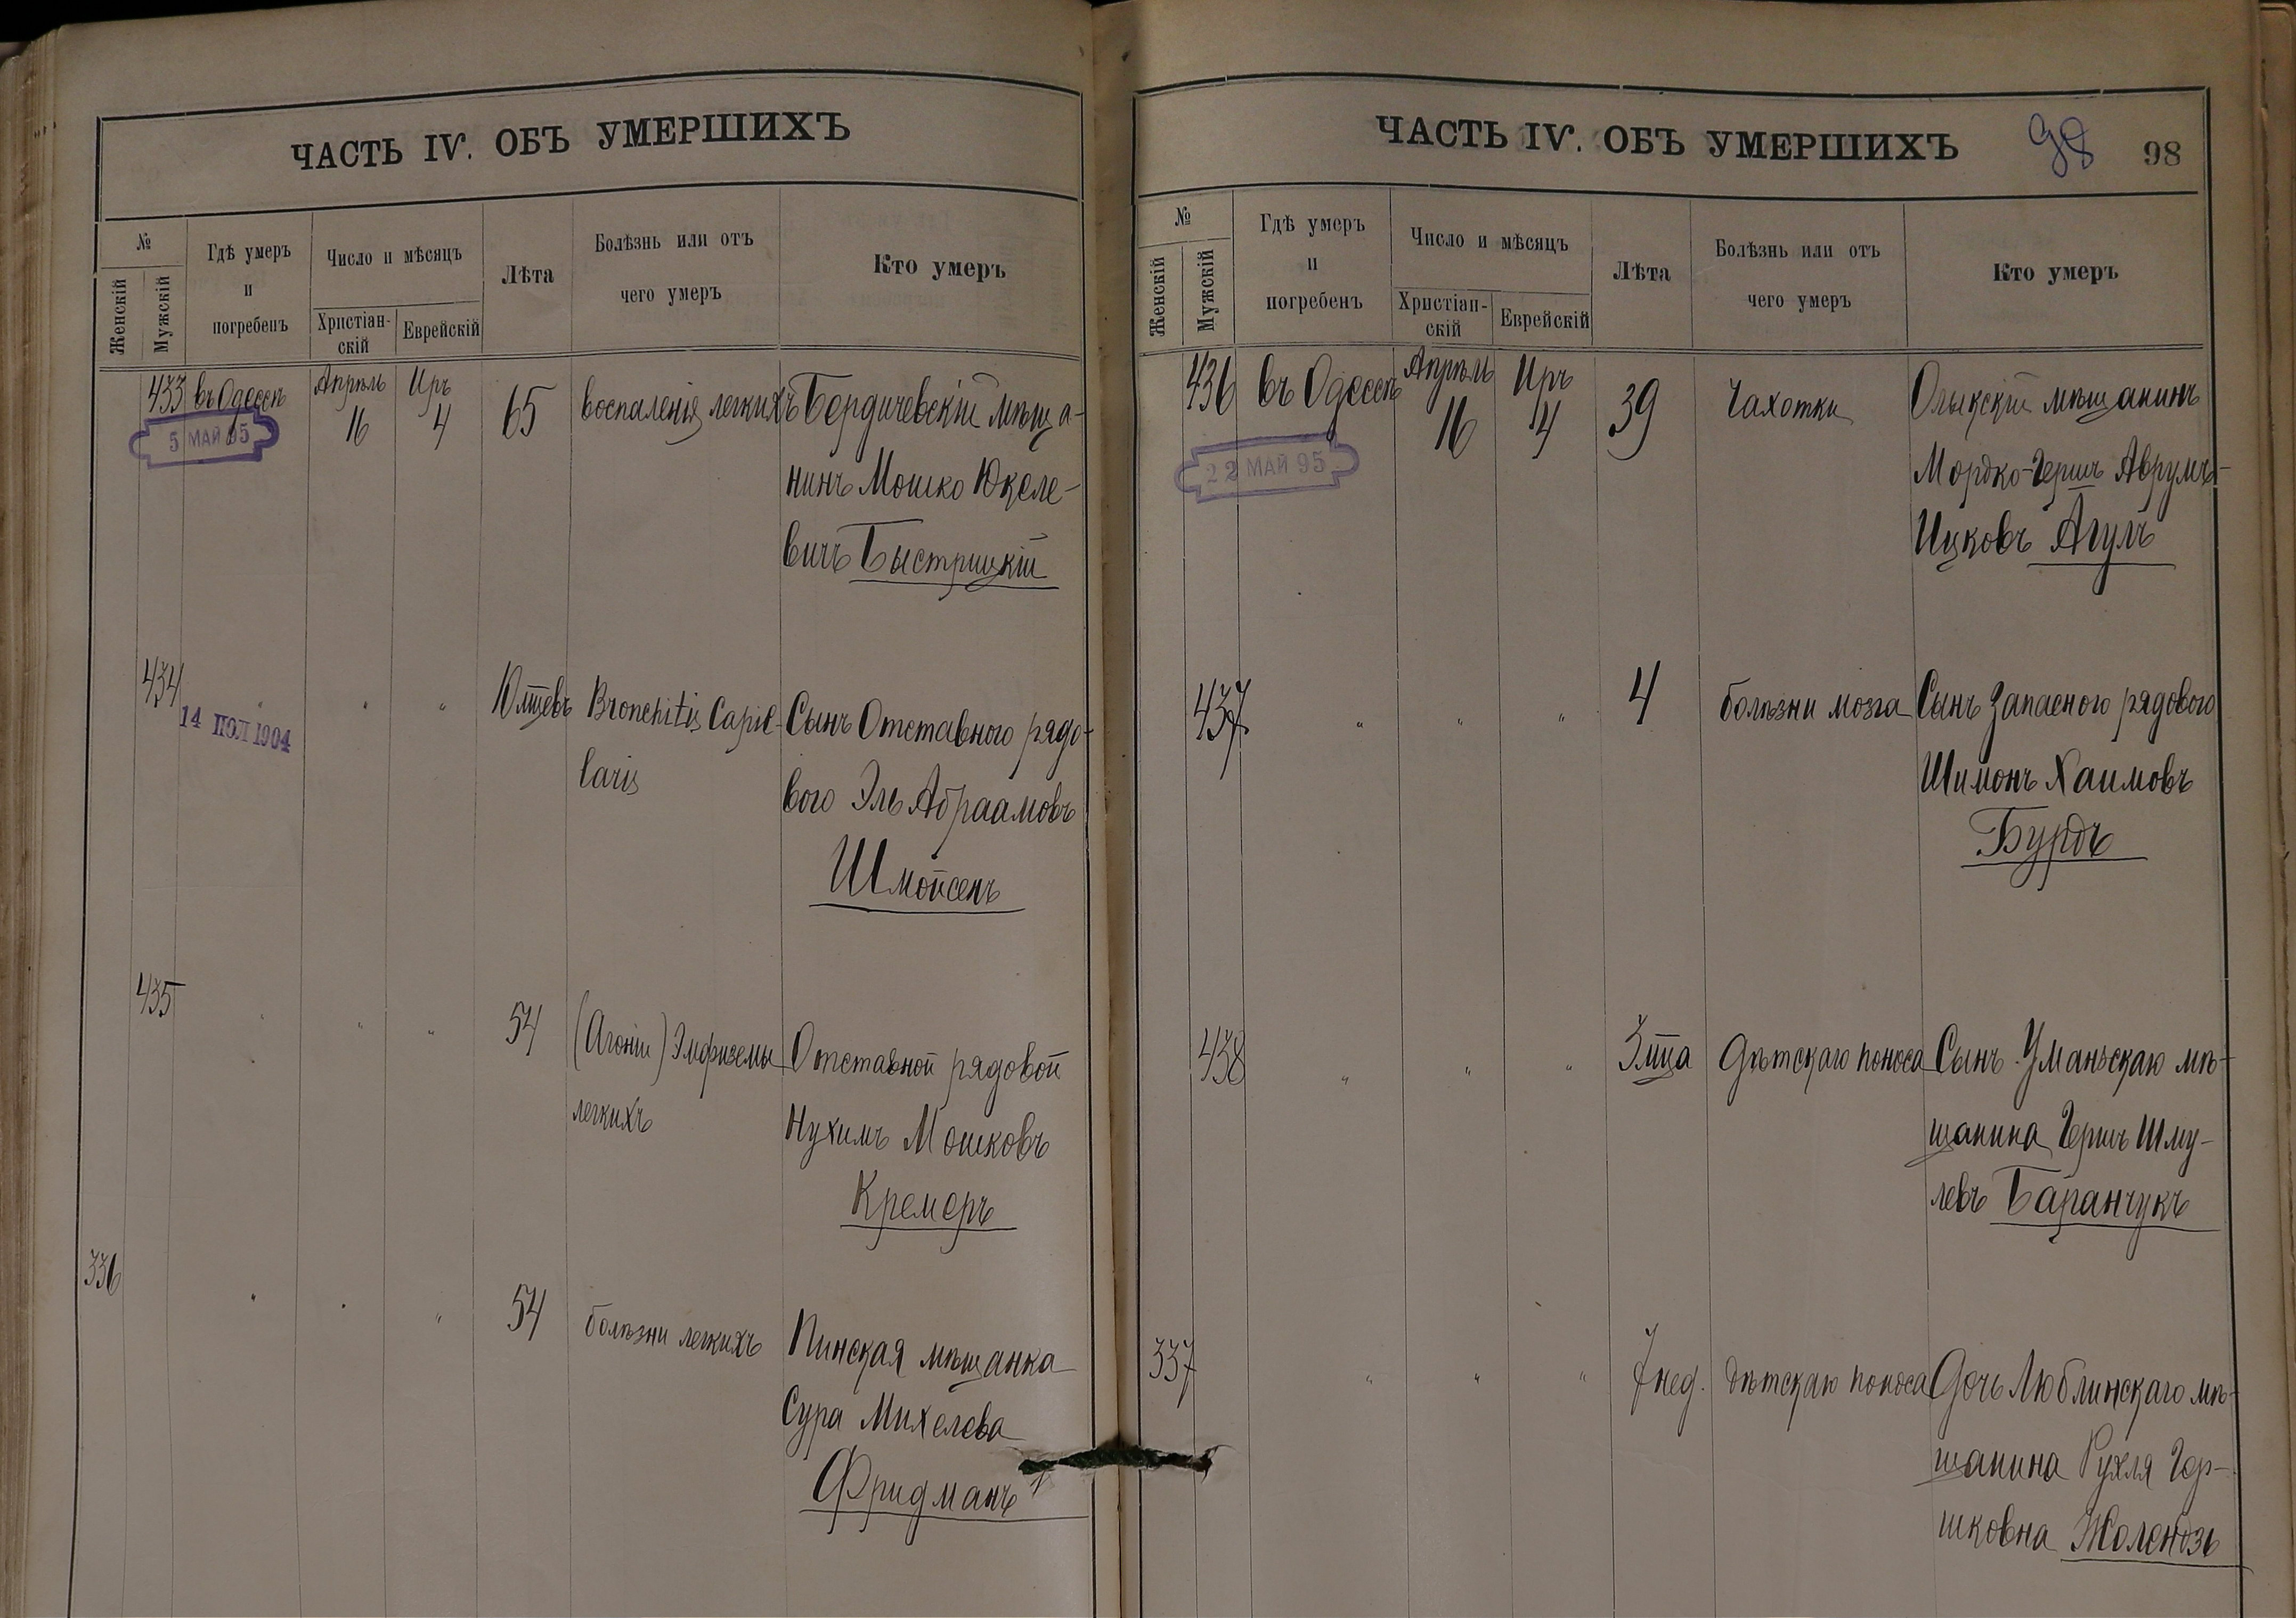 ЧАСТЬ IV. ОБЪ УМЕРШИХЪ
№
Женскій
Мужскій
Гдѣ умеръ
и
погребенъ
Число и мѣсяцъ
Христіан-
скій
Еврейскій
Лѣта
Болѣзнь или отъ
чего умеръ
Кто умеръ
433 въ Одессѣ Апрѣль 16 Иръ 4 65 воспаленія легкихъ Бердичевскій мѣща-
5 МАЙ 95
нинъ Мошко Юкеле-
вичъ Быстрицкій
434 " " " 10 мцевъ Bronchitis Capil- Сынъ Отставного рядо-
14 ІЮЛ 1904
laris вого Эль Абраамовъ
Шмойсенъ
435 " " " 54 (Агоніи) Эмфиземы Отставной рядовой
легкихъ Нухимъ Мошковъ
Кремеръ
336 " " " 54 болѣзни легкихъ Пинская мѣщанка
Сура Михелева
Фридманъ
ЧАСТЬ IV. ОБЪ УМЕРШИХЪ 98 98
№
Женскій
Мужскій
Гдѣ умеръ
и
погребенъ
Число и мѣсяцъ
Христіан-
скій
Еврейскій
Лѣта
Болѣзнь или отъ
чего умеръ
Кто умеръ
436 въ Одессѣ Апрѣль 16 Иръ 4 39 Чахотки Олыкскій мѣщанинъ
22 МАЙ 95
Мордко-Гершъ Аврумъ-
Ицковъ Агулъ
437 " " " 4 болѣзни мозга Сынъ Запасного рядового
Шимонъ Хаимовъ
Бурдъ
438 " " " 3 мца Дѣтскаго поноса Сынъ Уманьскаго мѣ-
щанина Гершъ Шму-
левъ Баранчукъ
337 " " " 7 нед. дѣтскаго поноса Дочь Люблинскаго мѣ-
щанина Рухля Гер-
шковна